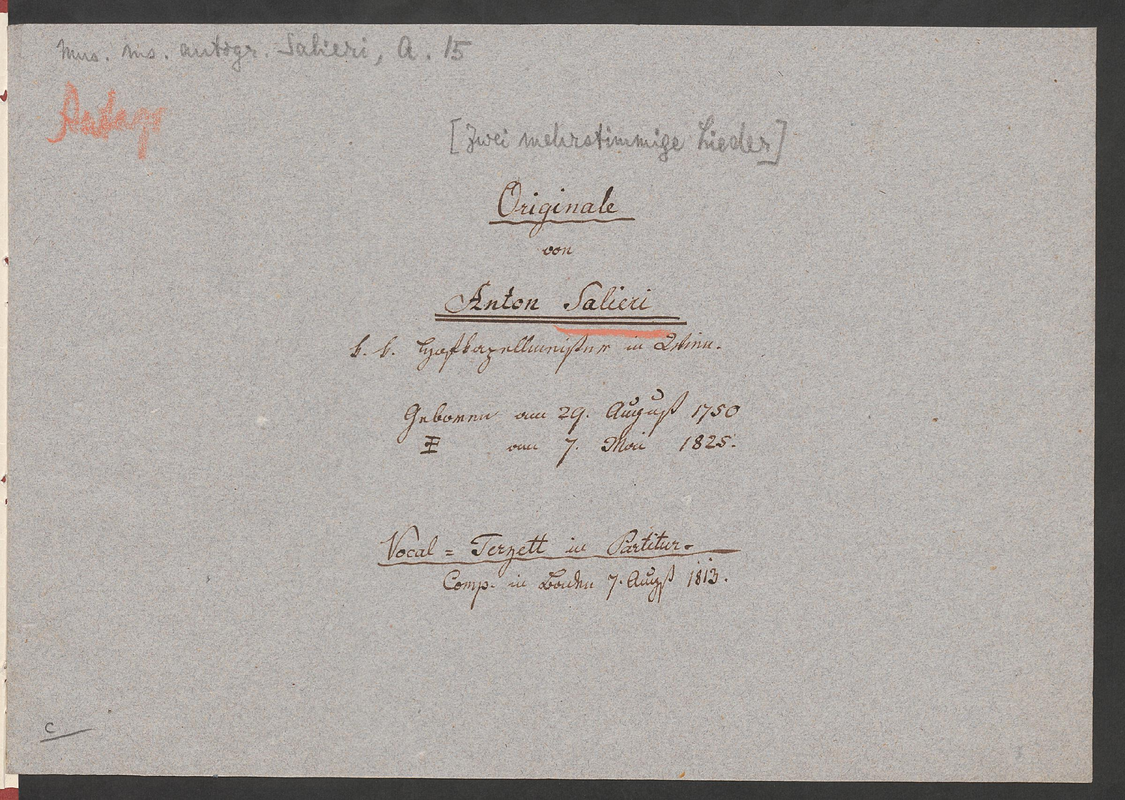 Mus. ms. autogr. Salieri, A. 15
Autogr
[Zwei mehrstimmige Lieder]
Originale
von
Anton Salieri
k. k. Hofkapellmeister in Wien.
Geboren am 29. August 1750
am 7. Mai 1825.
Vocal = Terzett in Partitur.
Comp. in Baden 7. Augst 1813.
C